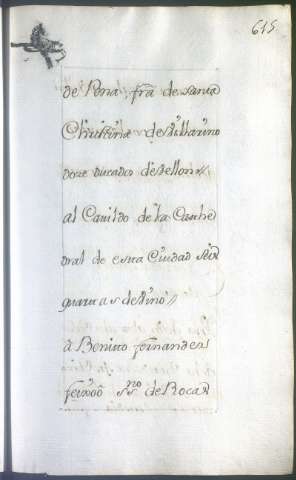 615
de Pena, frã de santa
Christina de Villarino
doze ducados de Vellon //
al Cavildo de la Cathe
dral de esta Ciudad seis
quartas de Vino //
à Benitto fernandez
feixoô ss.no de Rocas